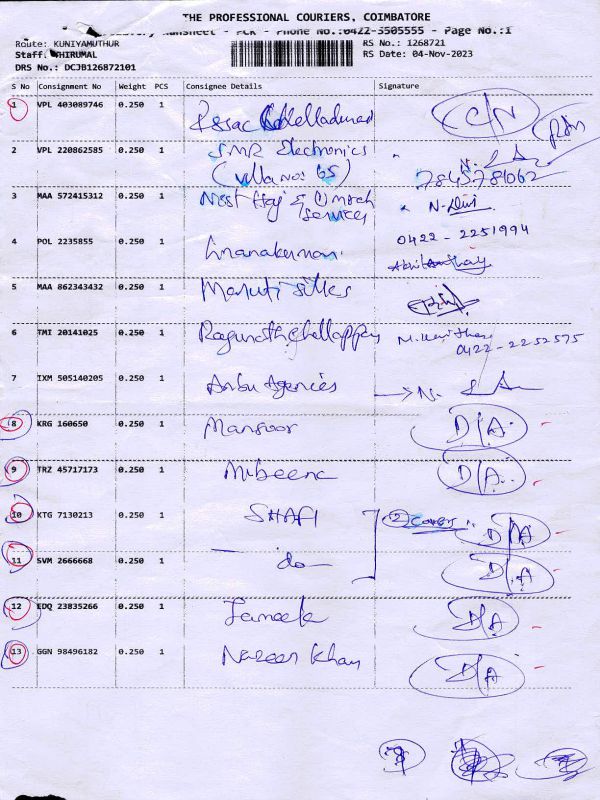 THE PROFESSIONAL COURIERS, COIMBATORE
Runsheet - PCK - Phone No.:0422-3505555 - Page No.:1
Route: KUNIYAMUTHUR RS No.: 1268721
Staff. THIRUMAL RS Date: 04-Nov-2023
DRS No.: DCJB126872101
S No Consignment No Weight PCS Consignee Details Signature
1 VPL 403089746 0.250 1 C/N
2 VPL 220862585 0.250 1 SMR Electronics
(Villa no: 65) 7845781062
3 MAA 572415312 0.250 1 West Haj &
Services N. Devi
0422 - 2251994
4 POL 2235855 0.250 1
5 MAA 862343432 0.250 1 Maruti silks
6 TMI 20141025 0.250 1 Ragunath Chellappan
0422 - 2252575
7 IXM 505140205 0.250 1 Anbu Agencies
8 KRG 160650 0.250 1 Mansoor D/A
9 TRZ 45717173 0.250 1 Mubeena D/A
10 KTG 7130213 0.250 1 SHAFI (2) Covers D/A
11 SVM 2666668 0.250 1 — do — D/A
12 EDQ 23835266 0.250 1 Jameela D/A
13 GGN 98496182 0.250 1 Nazeer Khan D/A